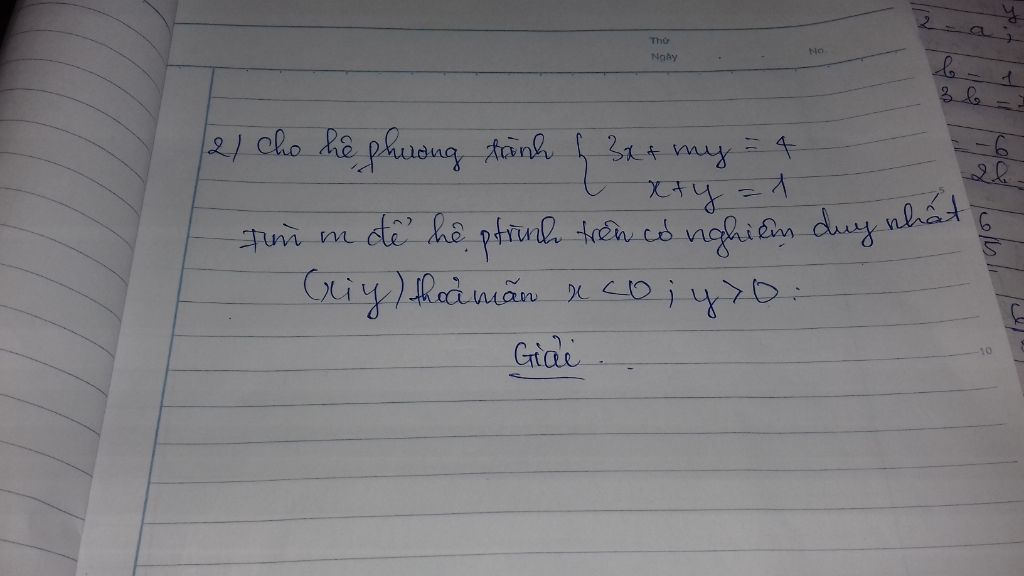 Thứ
Ngày
No.
2) Cho hệ phương trình { 3x + my = 4
x + y = 1
Tìm m để hệ ptrình trên có nghiệm duy nhất
(x; y) thoả mãn x < 0 ; y > 0 .
Giải .
5
10
y
2 = a ;
b = 1
3b =
= -6
2b =
6
5